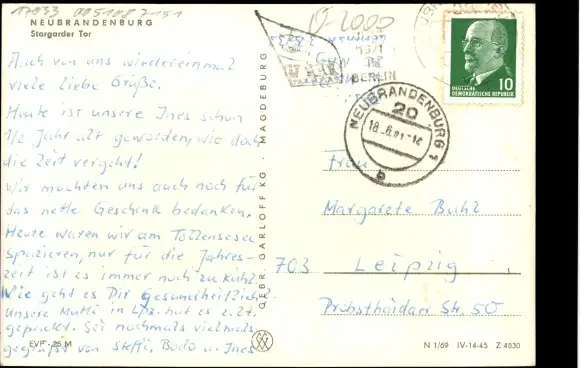 17033 0051087151
NEUBRANDENBURG
Stargarder Tor
Auch von uns wiedereinmal
viele liebe Grüße.
Heute ist unsere Ines schon
1/2 Jahr alt geworden, wie doch
die Zeit vergeht!
Wir möchten uns auch noch für
das nette Geschenk bedanken.
Heute waren wir am Tollensesee
spazieren, nur für die Jahres-
zeit ist es immer noch zu kühl.
Wie geht es Dir Gesundheitlich?
Unsere Mutti in Lpz. hat es z.Zt.
gepackt. Sei nochmals vielmals
gegrüßt von Steffi, Bodo u. Ines
EVP -25 M
GEBR. GARLOFF KG · MAGDEBURG
BERLIN
NEUBRANDENBURG 1
20
b
10
DEUTSCHE
DEMOKRATISCHE REPUBLIK
Frau
Margarete Buhl
703 Leipzig
Probstheidaer Str. 50
N 1/69 IV-14-45 Z 4830